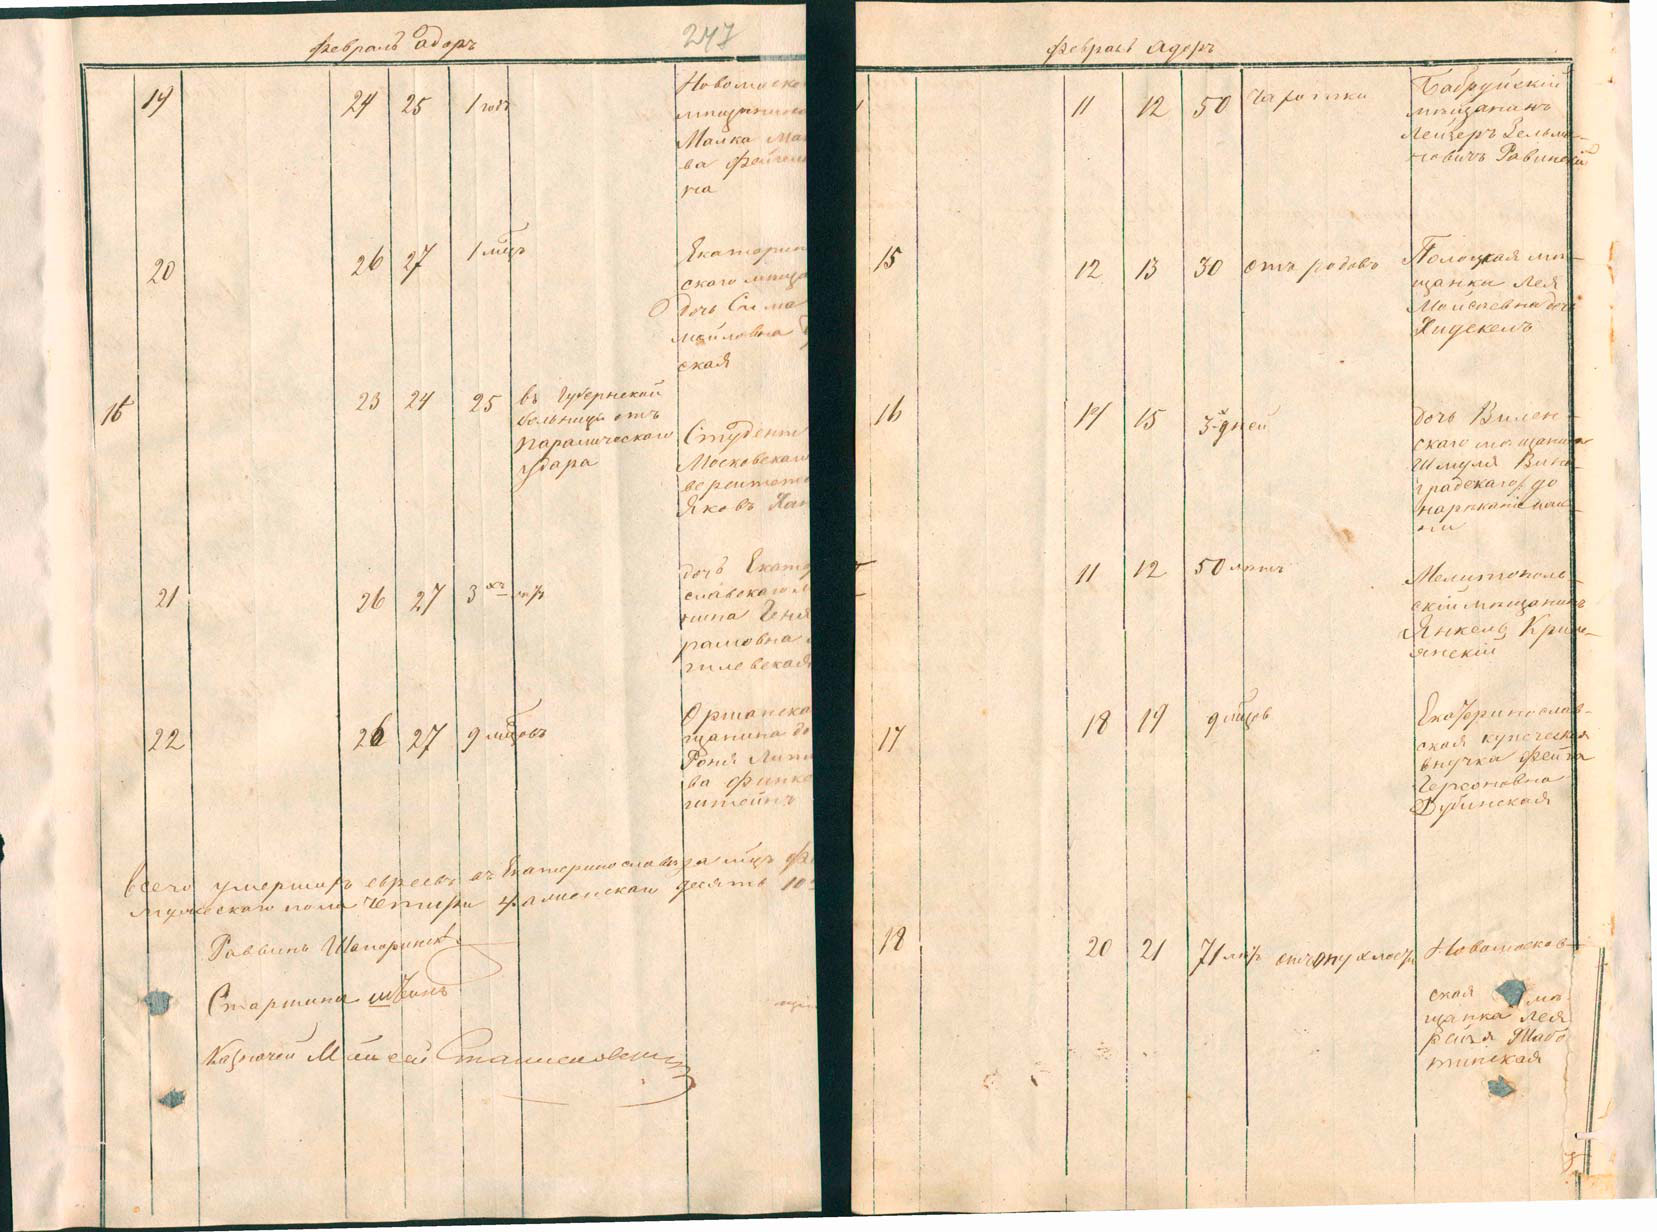 февраль адаръ
247
19 24 25 1 годъ
Новомоско
мѣщанина
Малка Ма
ва Фейгель
на
20 26 27 1 мѣць
Екатерин
скаго мѣща
дочь Сима
мойловна
ская
15 23 24 25
въ Губернской
больницѣ отъ
паралическаго
удара
Студентъ
Московскаго
верситета
Яковъ Хан
21 26 27 3 хъ лѣтъ
дочь Екате
славскаго м
нина Геня
рамовна
гилевская
22 26 27 9 мѣцовъ
Оршанска
щанина до
Роня Липм
ва Финке
штейнъ
Всего умершихъ евреевъ въ Екатеринославѣ за мѣць фе
мужескаго пола четыри женскаго десять 10
Раввинъ Шапоринск
Старшина Штеинъ
Казначей Моисей Станиславски
февраль Адаръ
11 12 50 Чахотки
Бабруйскій
мѣщананъ
Лейзеръ Зельма-
новичъ Равинскій
15 12 13 30 отъ родовъ
Полоцкая мѣ-
щанка Лея
Моисѣевна дочь
Хидекель
16 14 15 3х дней
дочь Вилен-
скаго мѣщанина
Шмуля Вино-
градскаго до
нарѣканіе имѣ-
ни
11 12 50 лѣтъ
Мелитополь-
скій мѣщанинъ
Янкель Крим-
янскій
17 18 19 9 мѣцов
Екатеринослав-
ская купеческая
внучка Фейга
Герсоновна
Дубинская
18 20 21 71 лѣтъ отъ опухлость
Новомосков-
ская мѣ-
щанка Лея
Рейзя Шабо
тинская